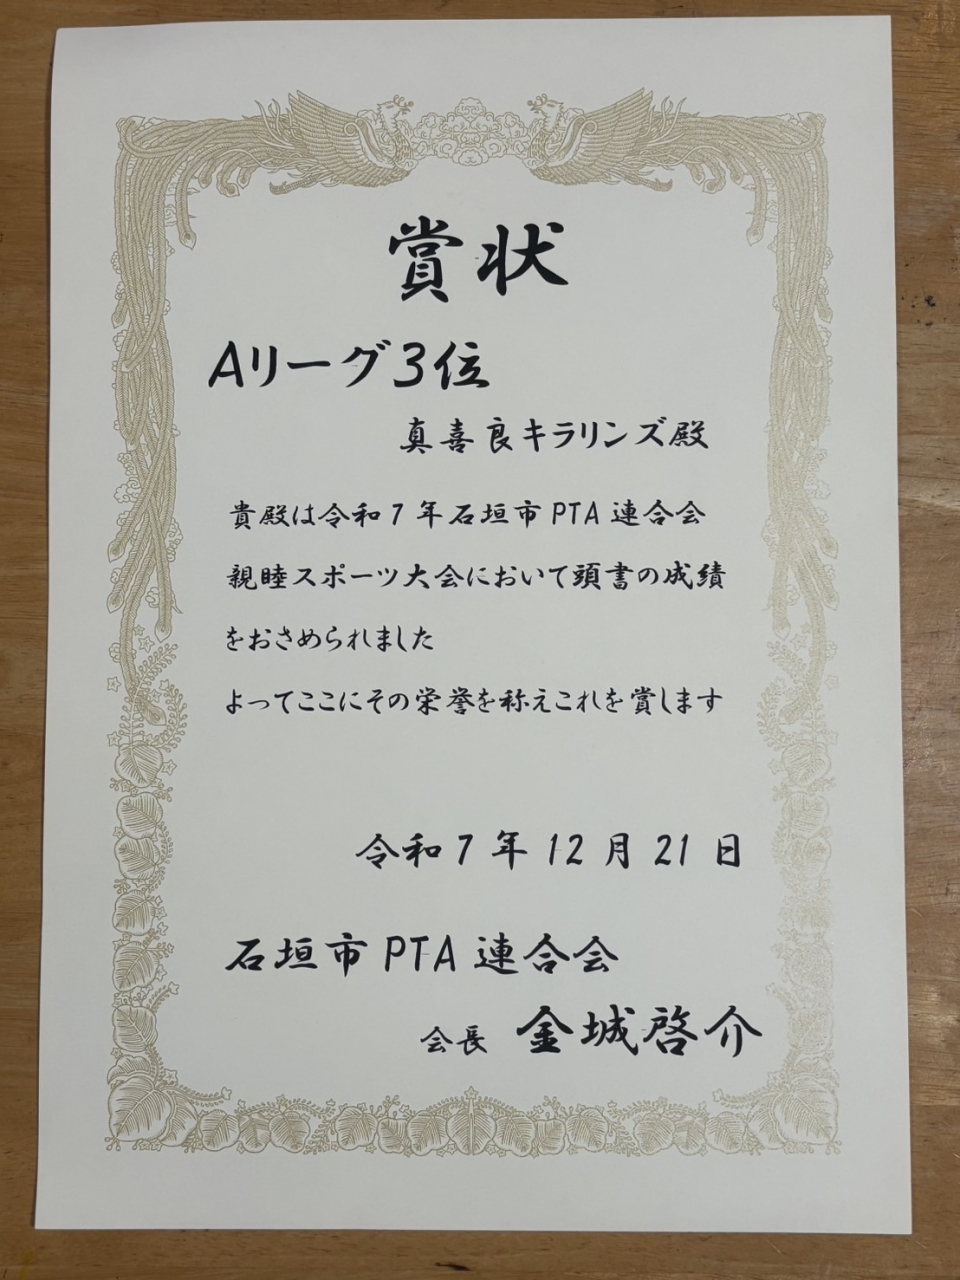 賞状
Aリーグ3位
真喜良キラリンズ殿
貴殿は令和7年石垣市PTA連合会
親睦スポーツ大会において頭書の成績
をおさめられました
よってここにその栄誉を称えこれを賞します
令和7年12月21日
石垣市PTA連合会
会長 金城啓介